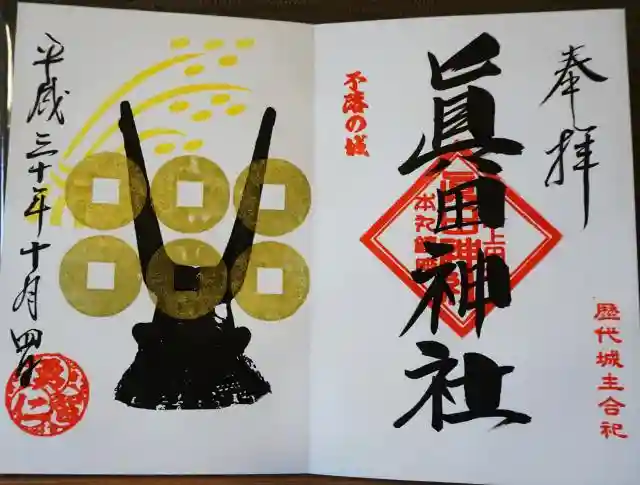 奉拝
眞田神社
上田
本丸鎮座
眞田神社
不落の城
歴代城主合祀
平成三十年十月四日